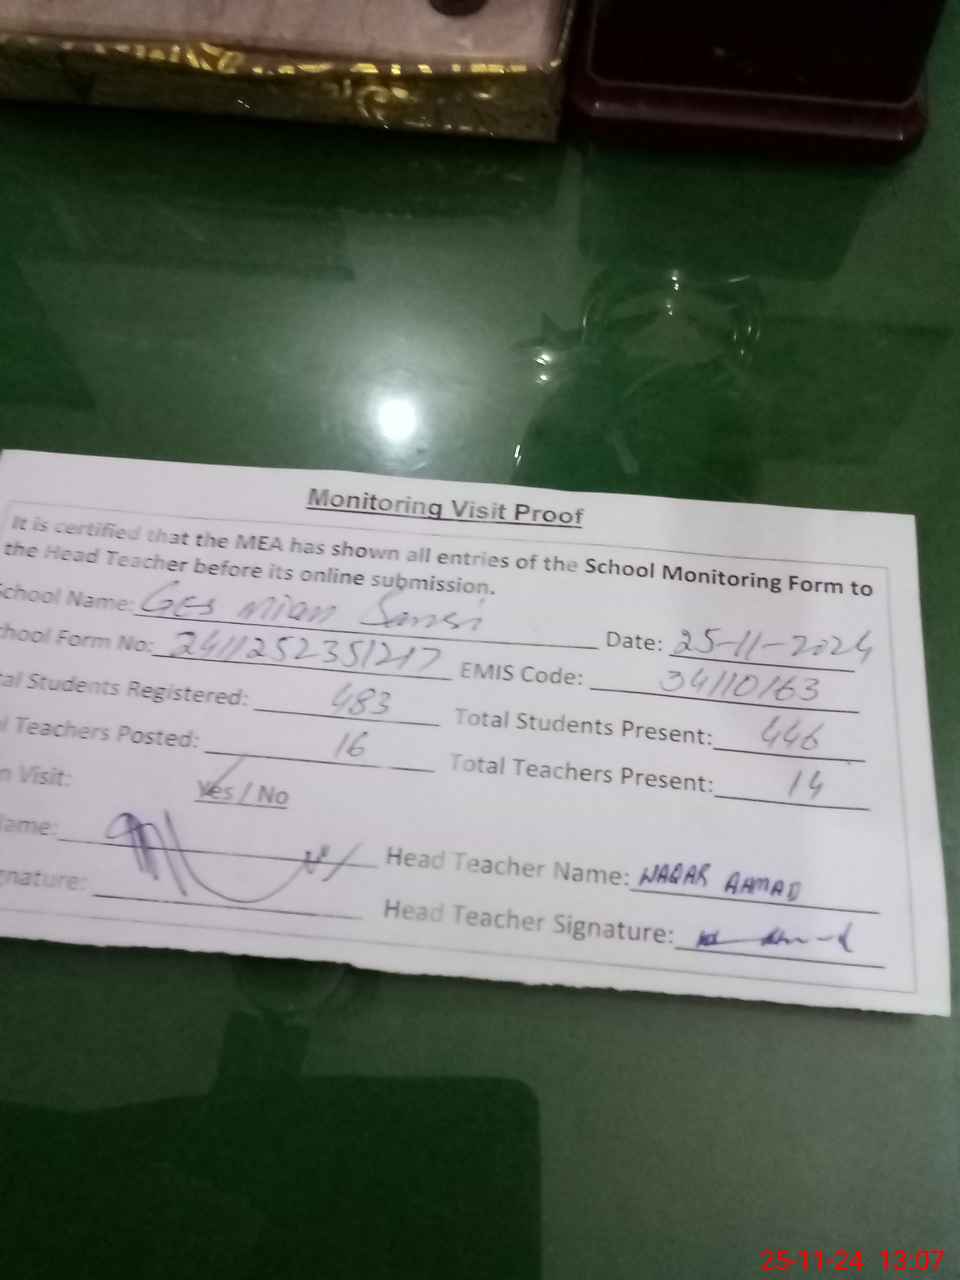 Monitoring Visit Proof
It is certified that the MEA has shown all entries of the School Monitoring Form to
the Head Teacher before its online submission.
School Name: GES Mian Sansi Date: 25-11-2024
chool Form No: 2411252351217 EMIS Code: 34110163
tal Students Registered: 483 Total Students Present: 446
l Teachers Posted: 16 Total Teachers Present: 14
n Visit: Yes / No
ame: Head Teacher Name: WAQAR AHMAD
gnature: Head Teacher Signature:
25-11-24 13:07